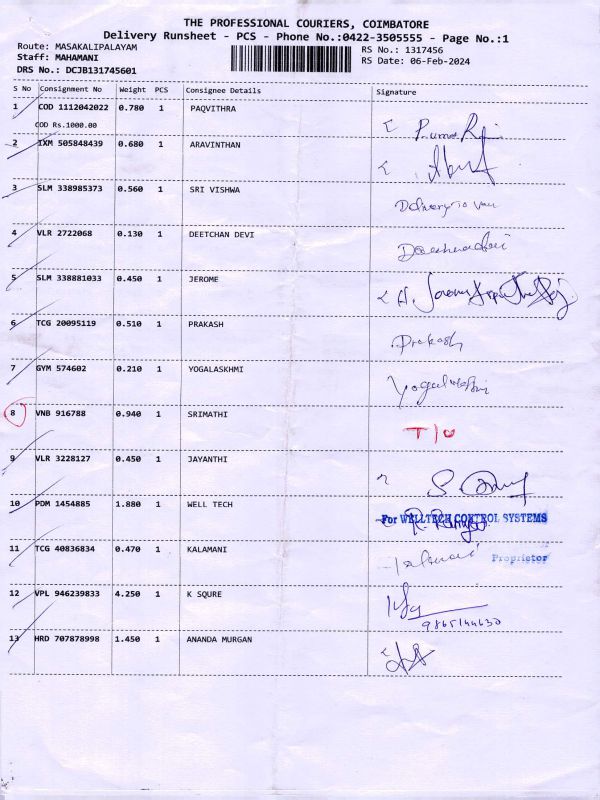 THE PROFESSIONAL COURIERS, COIMBATORE
Delivery Runsheet - PCS - Phone No.:0422-3505555 - Page No.:1
Route: MASAKALIPALAYAM
Staff: MAHAMANI
DRS No.: DCJB131745601
RS No.: 1317456
RS Date: 06-Feb-2024
S No Consignment No Weight PCS Consignee Details Signature
1 COD 1112042022 0.780 1 PAQVITHRA
COD Rs.1000.00
2 IXM 505848439 0.680 1 ARAVINTHAN
3 SLM 338985373 0.560 1 SRI VISHWA
4 VLR 2722068 0.130 1 DEETCHAN DEVI
5 SLM 338881033 0.450 1 JEROME
6 TCG 20095119 0.510 1 PRAKASH Prakash
7 GYM 574602 0.210 1 YOGALASKHMI
8 VNB 916788 0.940 1 SRIMATHI T/O
9 VLR 3228127 0.450 1 JAYANTHI
10 PDM 1454885 1.880 1 WELL TECH For WELLTECH CONTROL SYSTEMS
11 TCG 40836834 0.470 1 KALAMANI Proprietor
12 VPL 946239833 4.250 1 K SQURE
9865144630
13 HRD 707878998 1.450 1 ANANDA MURGAN